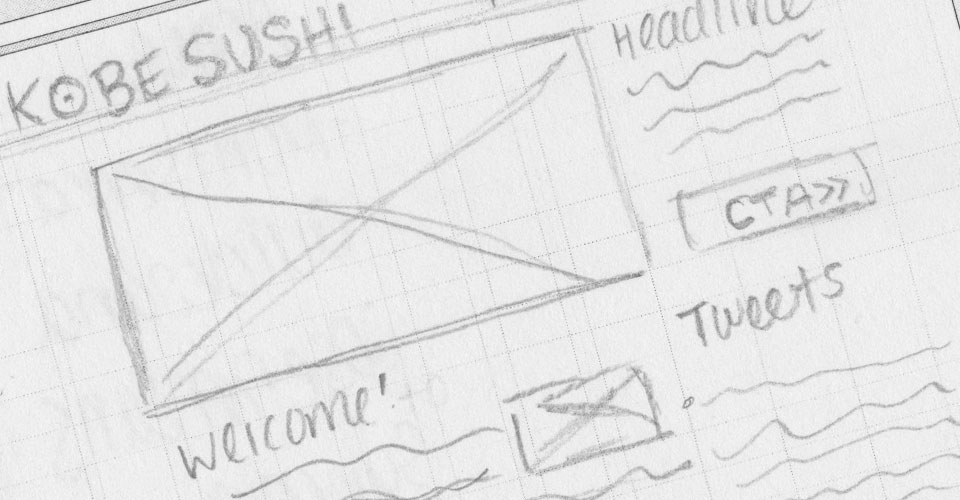 KOBE SUSHI
Headline
CTA>>
Tweets
Welcome!